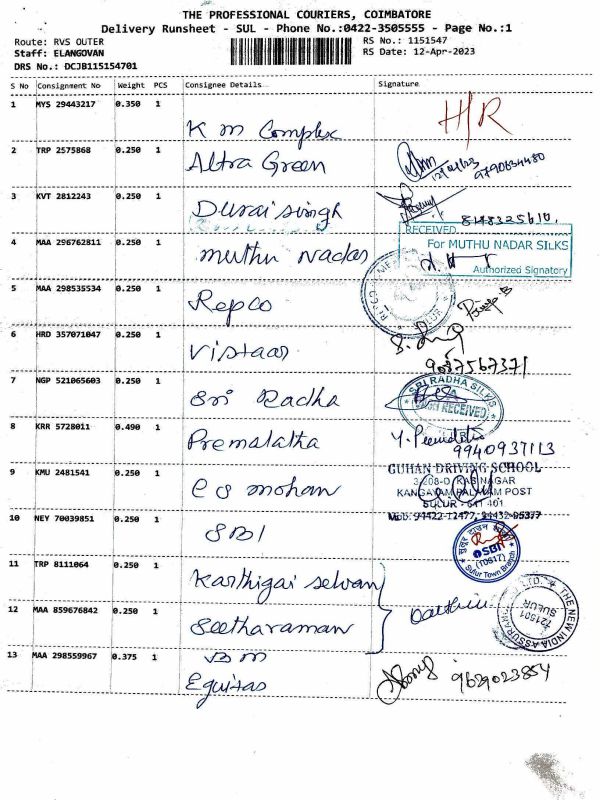 THE PROFESSIONAL COURIERS, COIMBATORE
Delivery Runsheet - SUL - Phone No.:0422-3505555 - Page No.:1
Route: RVS OUTER
Staff: ELANGOVAN
DRS No.: DCJB115154701
RS No.: 1151547
RS Date: 12-Apr-2023
S No Consignment No Weight PCS Consignee Details Signature
1 MYS 29443217 0.350 1 K m Complex H/R
2 TRP 2575868 0.250 1 Altra Green 9790634480
3 KVT 2812243 0.250 1 Durai singh 8148325610.
RECEIVED
For MUTHU NADAR SILKS
Authorized Signatory
4 MAA 296762811 0.250 1 muthu Nadar
5 MAA 298535534 0.250 1 Repco
6 HRD 357071047 0.250 1 Vistaar 9087567371
7 NGP 521065603 0.250 1 Sri Radha
SRI RADHA SILKS
RECEIVED
8 KRR 5728011 0.490 1 Premalatha 9940937113
9 KMU 2481541 0.250 1 C S mohan
GUHAN DRIVING SCHOOL
3/208-D, KAS NAGAR
KANGAYAM PALAYAM POST
SULUR - 641 401
Mob: 94422-12477, 94432-05377
10 NEY 70039851 0.250 1 SBI
SBI
Sulur Town Branch
11 TRP 8111064 0.250 1 Karthigai selvan
12 MAA 859676842 0.250 1 Seetharaman
THE NEW INDIA ASSURANCE
721501
SULUR
13 MAA 298559967 0.375 1 BM
Equitas 9629023854